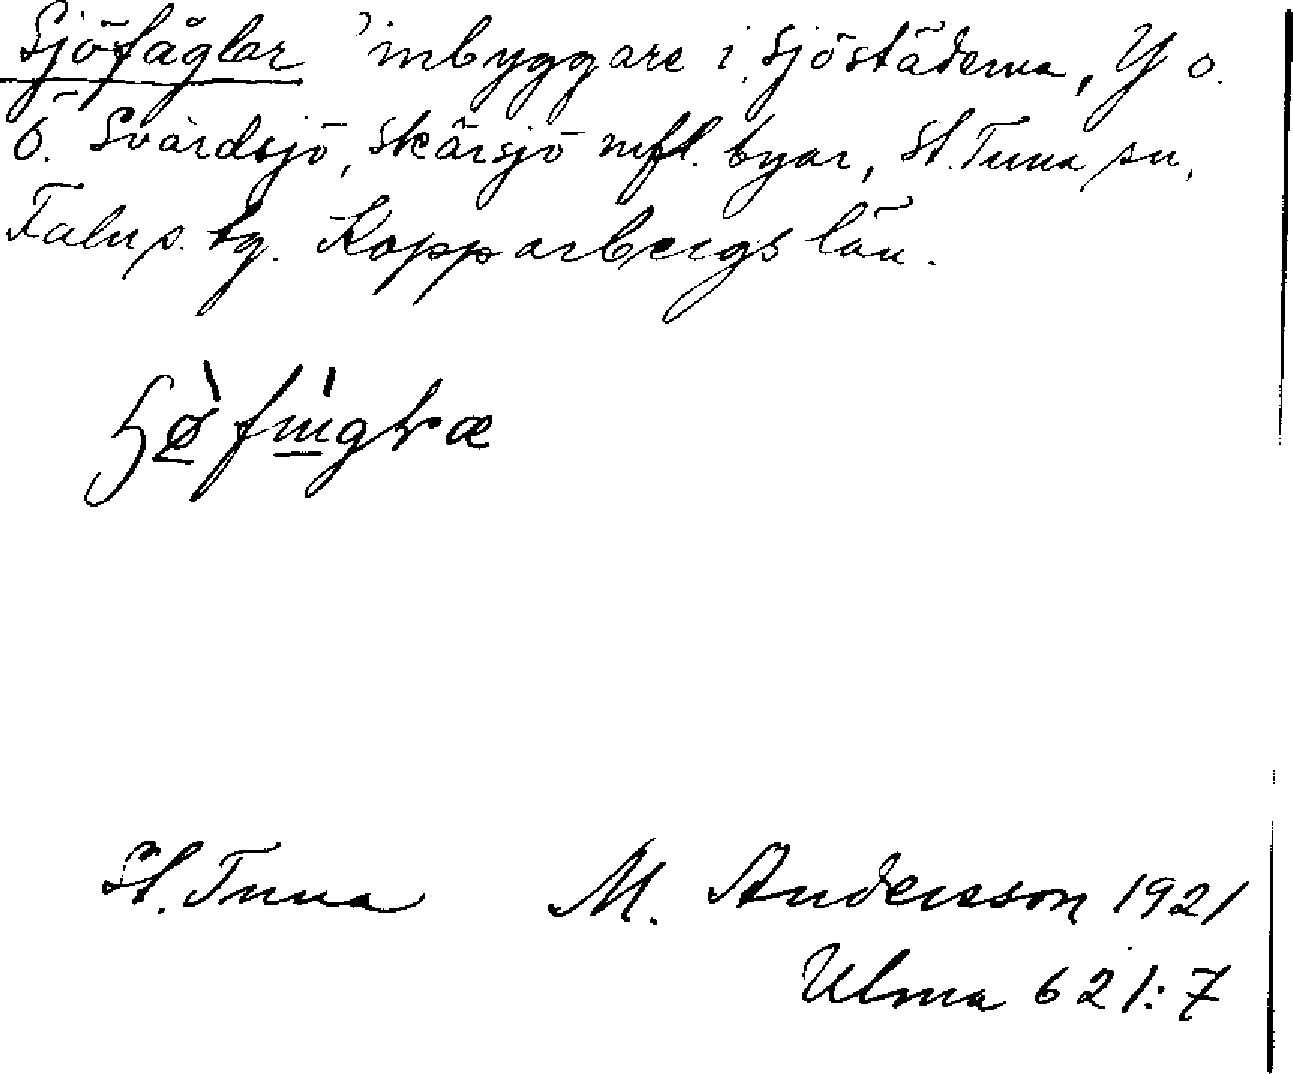 Sjöfåglar 'inbyggare i Sjöstäderna, Y o.
Ö. Svärdsjö, Skärsjö mfl. byar, St. Tuna sn,
Falu s. tg. Kopparbergs län.
St. Tuna M. Andersson 1921
Ulma 621:7